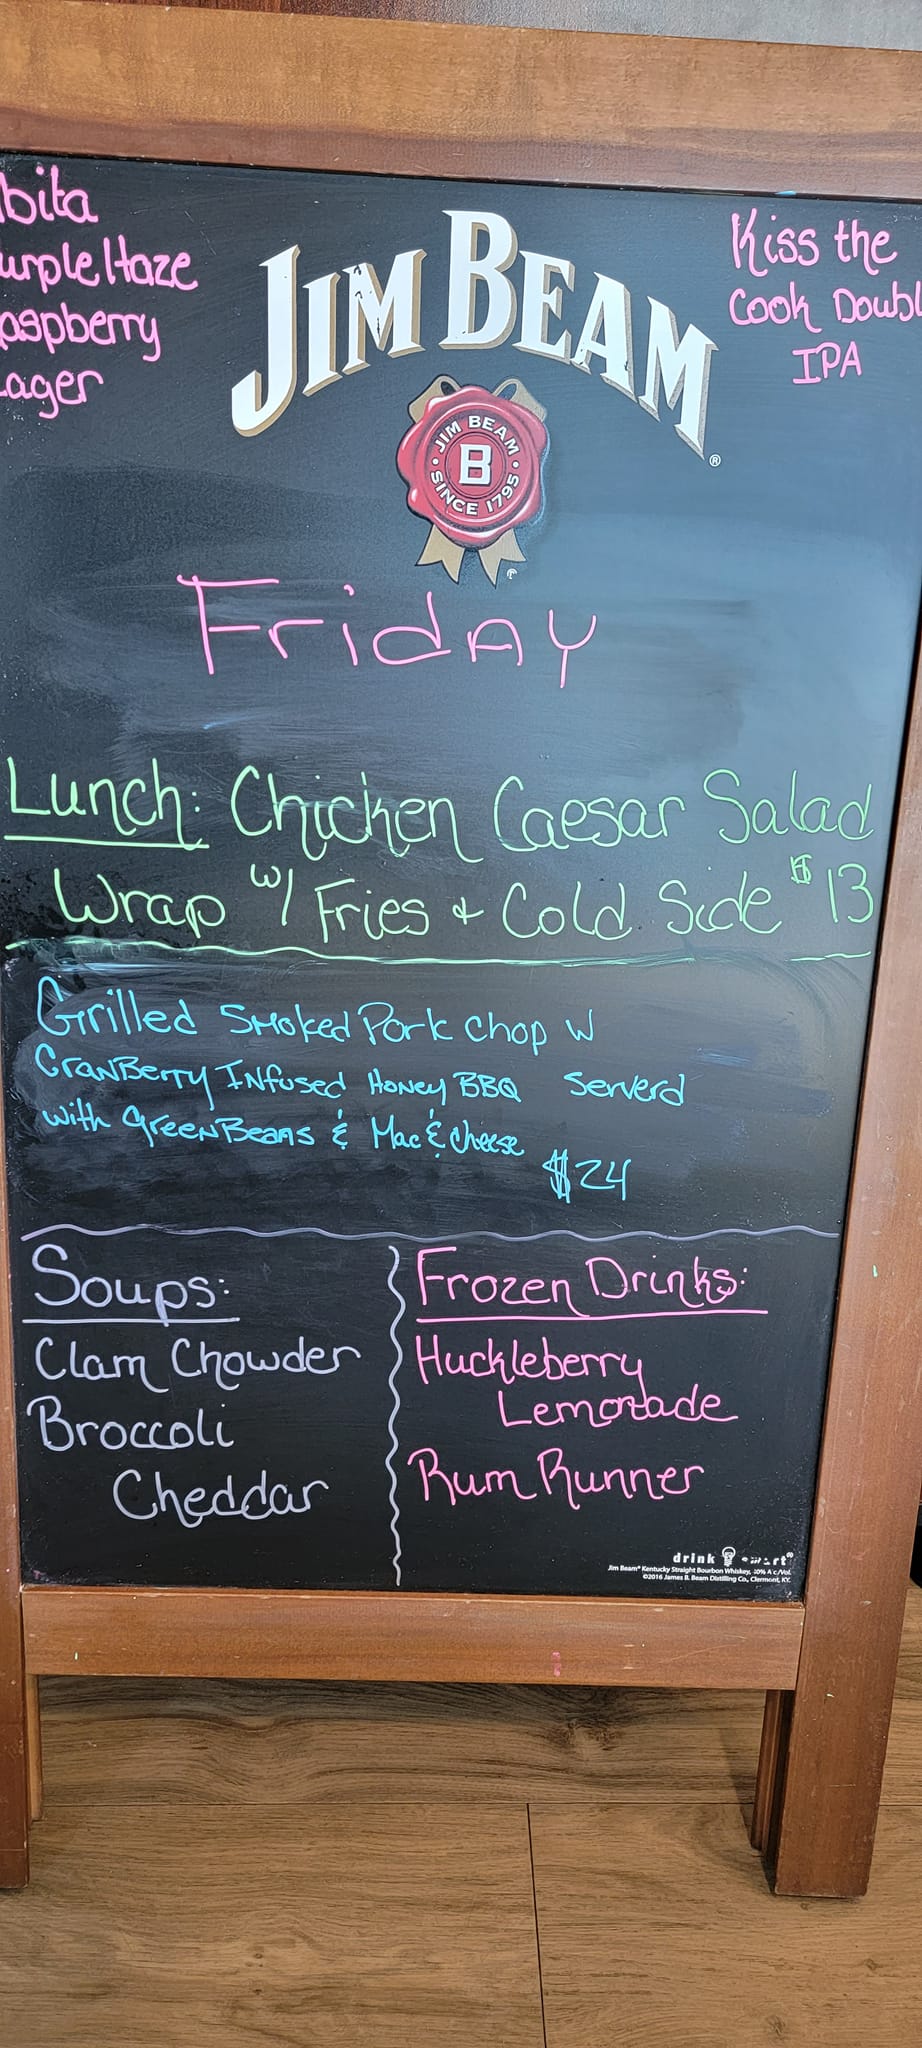 bita
urple Haze
aspberry
ager
Kiss the
Cook Doubl
IPA
JIM BEAM
®
JIM BEAM
B
SINCE 1795
Friday
Lunch: Chicken Caesar Salad
Wrap w/ Fries & Cold Side $13
Grilled Smoked Pork Chop w
Cranberry Infused Honey BBQ Serverd
with Green Beans & Mac & Cheese
$24
Soups:
Clam Chowder
Broccoli
Cheddar
Frozen Drinks:
Huckleberry
Lemonade
Rum Runner
drink smart®
Jim Beam® Kentucky Straight Bourbon Whiskey, 40% Alc/Vol.
©2016 James B. Beam Distilling Co., Clermont, KY.